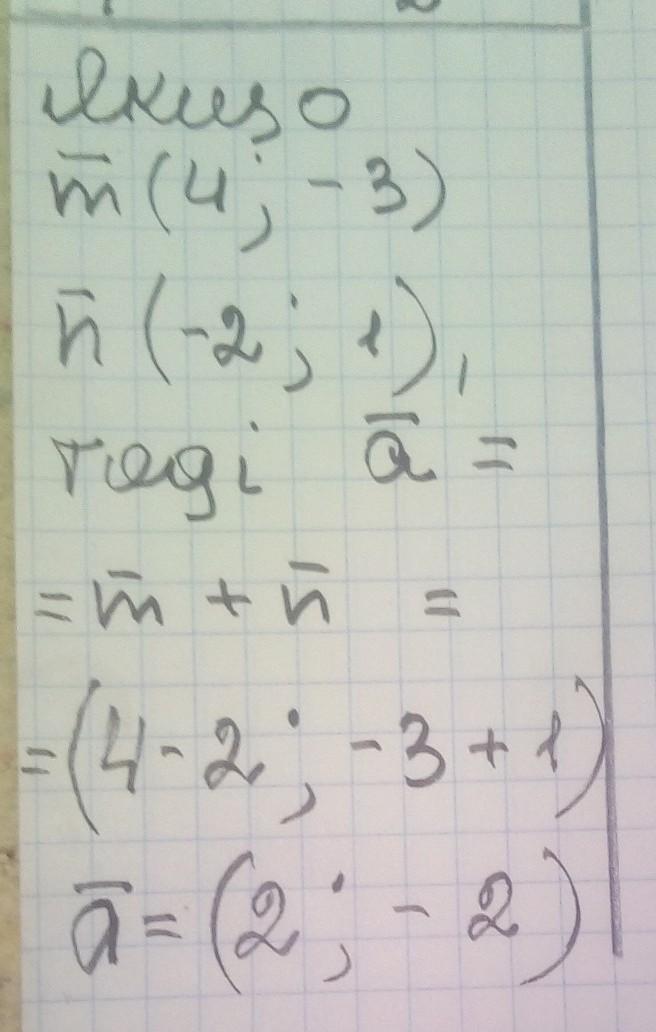 Якщо
m̅ (4; -3)
n̅ (-2; 1),
тоді a̅ =
= m̅ + n̅ =
= (4 - 2; -3 + 1)
a̅ = (2; - 2)